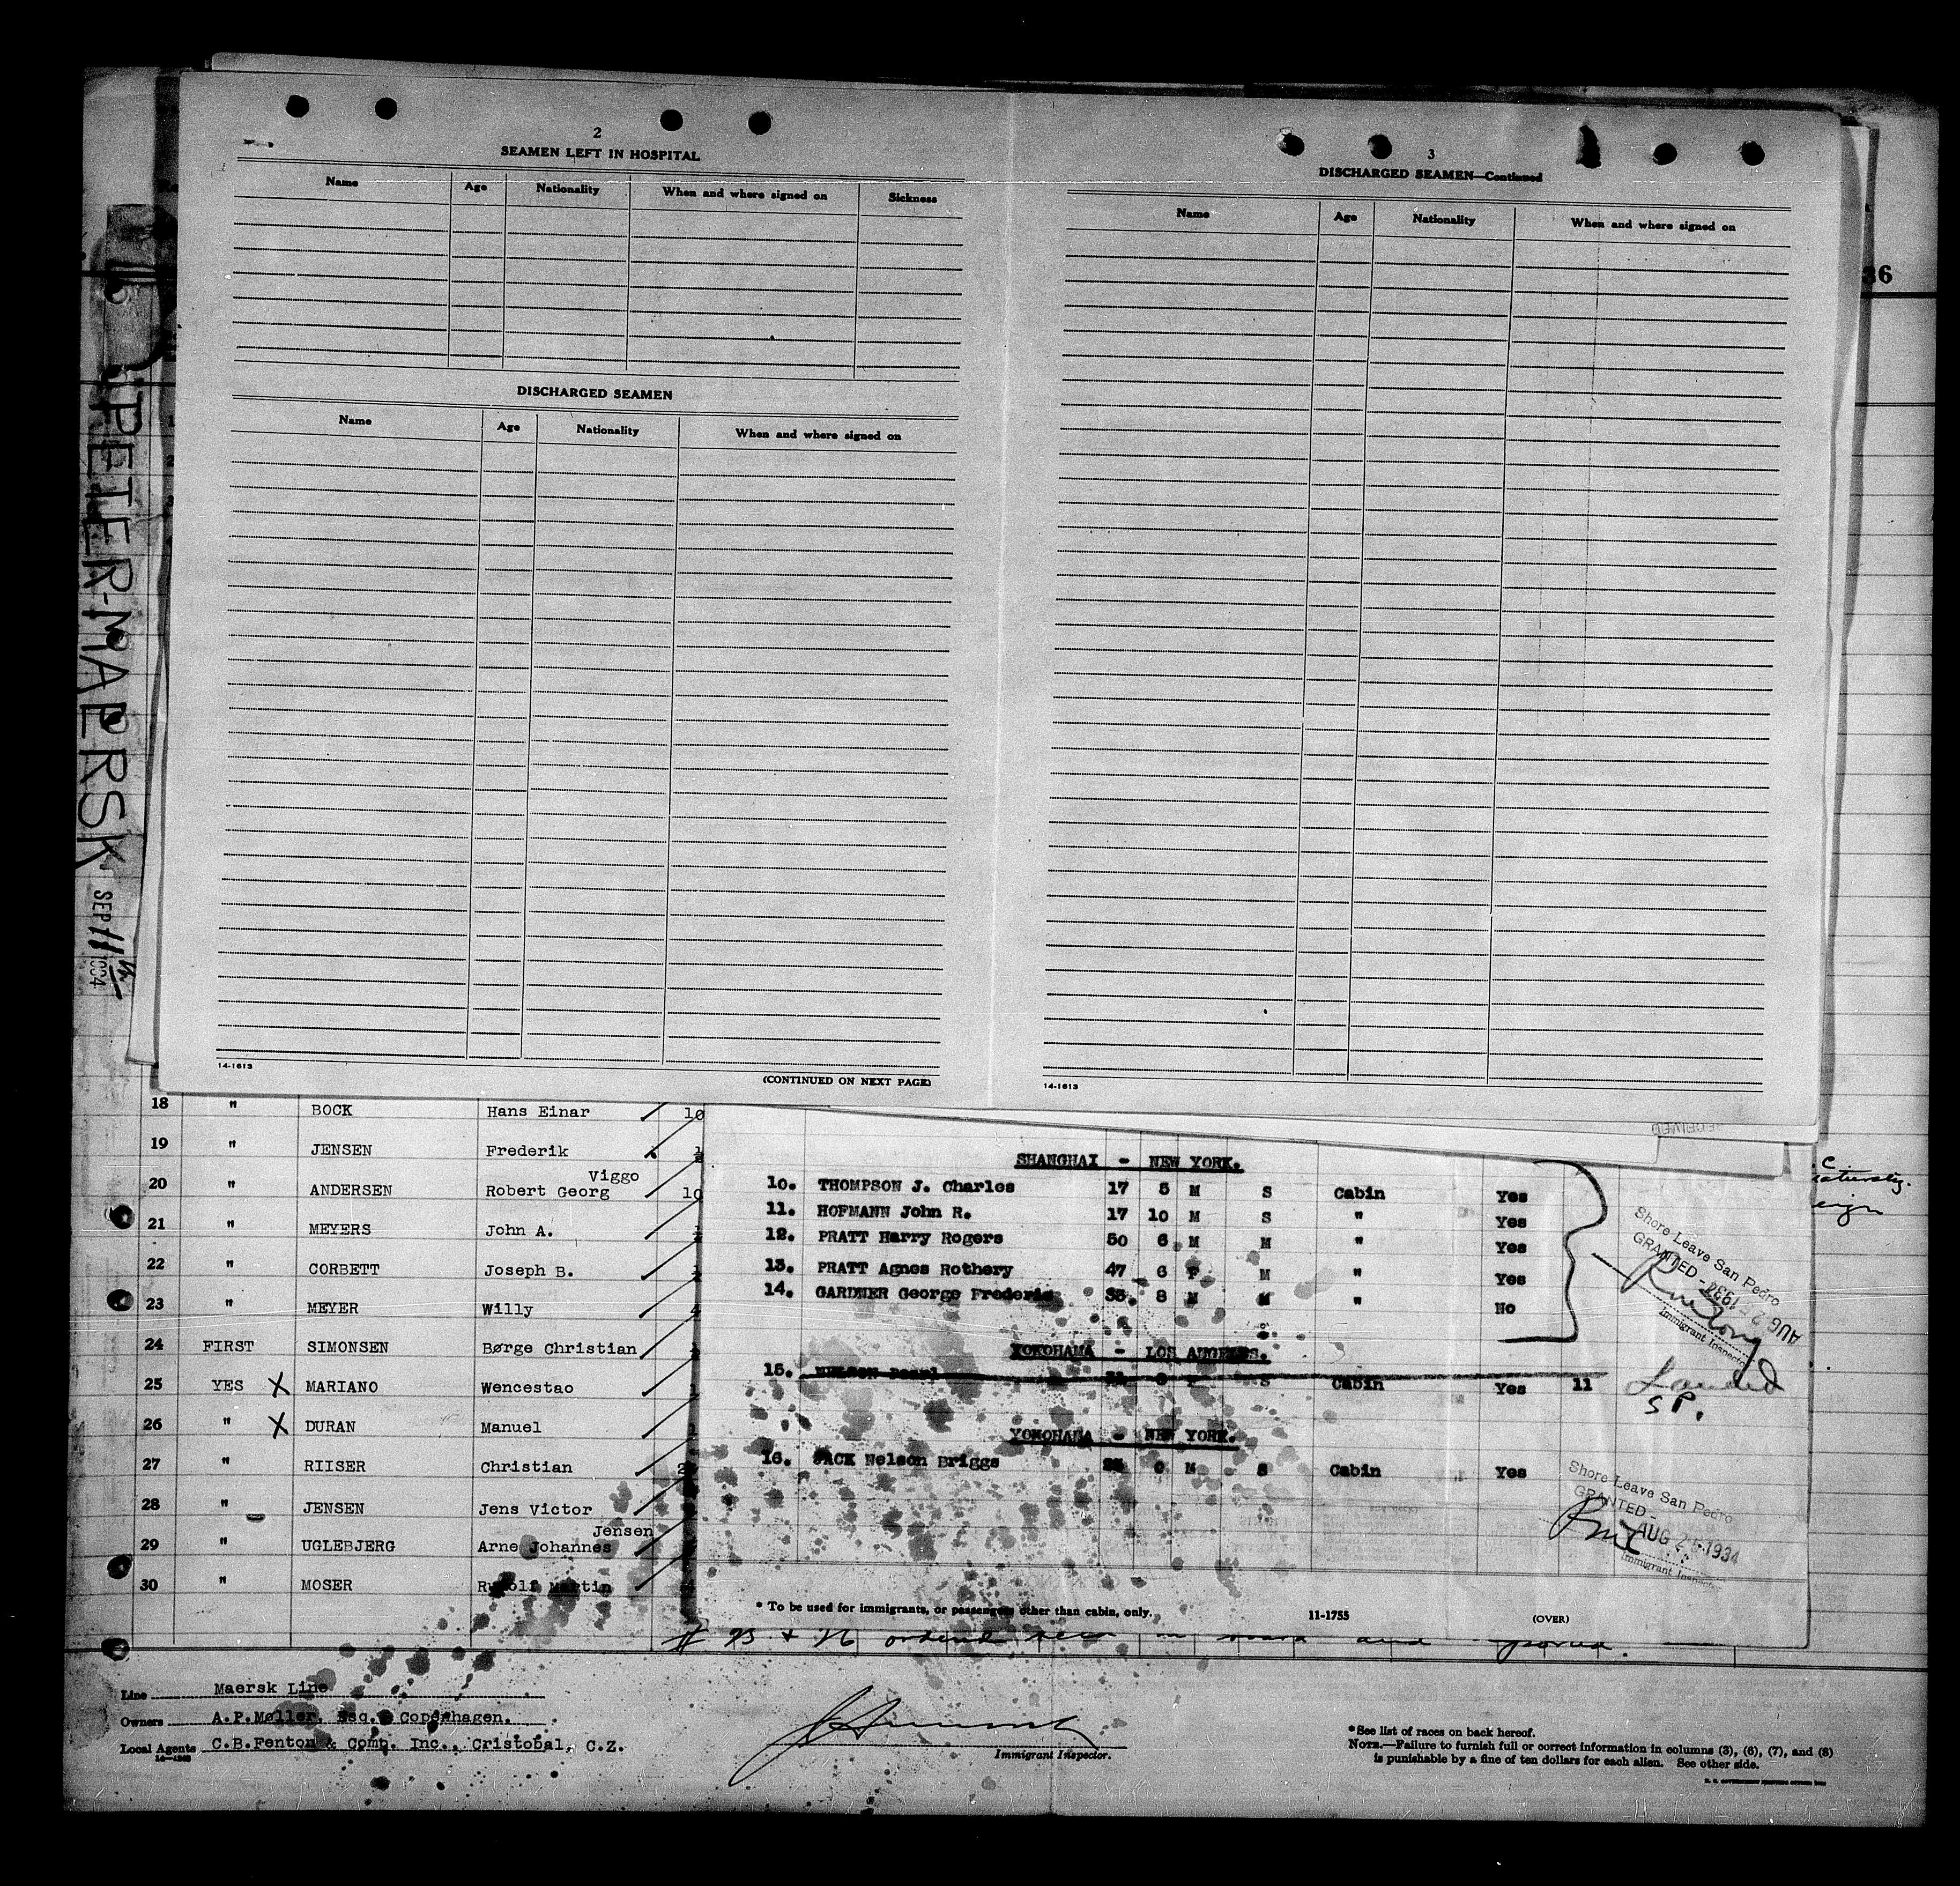 PETER MAERSK
SEP 11th 1934
2
SEAMEN LEFT IN HOSPITAL
Name Age Nationality When and where signed on Sickness
DISCHARGED SEAMEN
Name Age Nationality When and where signed on
14-1613
(CONTINUED ON NEXT PAGE)
3
DISCHARGED SEAMEN—Continued
Name Age Nationality When and where signed on
14-1613
36
RECEIVED
18 " BOCK Hans Einar 10
19 " JENSEN Frederik
Viggo
20 " ANDERSEN Robert Georg 10
21 " MEYERS John A.
22 " CORBETT Joseph B.
23 " MEYER Willy
24 FIRST SIMONSEN Børge Christian
25 YES X MARIANO Wencestao
26 " X DURAN Manuel
27 " RIISER Christian
28 " JENSEN Jens Victor
Jensen
29 " UGLEBJERG Arne Johannes
30 " MOSER Rudolf Martin
SHANGHAI - NEW YORK.
10. THOMPSON J. Charles 17 5 M S Cabin Yes
11. HOFMANN John R. 17 10 M S " Yes
12. PRATT Harry Rogers 50 6 M M " Yes
13. PRATT Agnes Rothery 47 6 F M " Yes
14. GARDNER George Frederic 33 8 M M " No
Shore Leave San Pedro
GRANTED -
AUG 2 - 1934
Immigrant Inspector
YOKOHAMA - LOS ANGELES.
15. NELSON Pearl S Cabin Yes 11 Landed
S P.
YOKOHAMA - NEW YORK.
16. JACK Nelson Briggs M S Cabin Yes
Shore Leave San Pedro
GRANTED -
AUG 2 - 1934
Immigrant Inspector
* To be used for immigrants, or passengers other than cabin, only.
11-1755
(OVER)
Line Maersk Line
Owners A.P.Møller, Esq. Copenhagen.
Local Agents C.B.Fenton & Comp. Inc., Cristobal, C.Z.
Immigrant Inspector.
* See list of races on back hereof.
NOTE.—Failure to furnish full or correct information in columns (3), (6), (7), and (8)
is punishable by a fine of ten dollars for each alien. See other side.